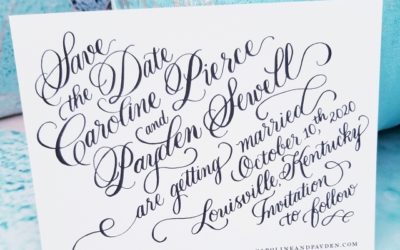 Save
the Date
Caroline Pierce
and
Payden Sewell
are getting married
October 10th 2020
Louisville, Kentucky
Invitation
to follow